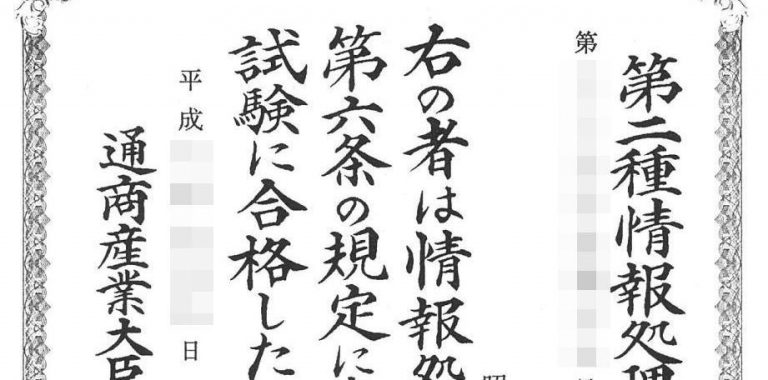 第二種情報処理
第
右の者は情報処
昭
第六条の規定に
試験に合格した
平成 日
通商産業大臣